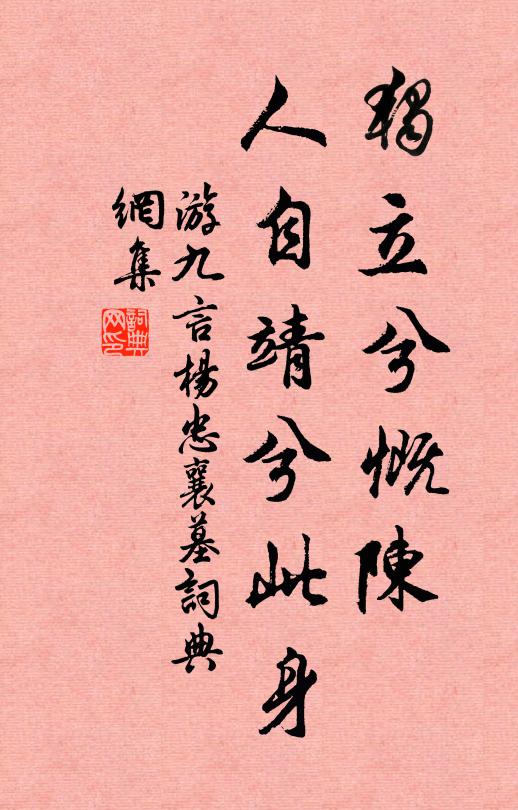 獨立兮慨陳
人自靖兮此身
游九言楊忠襄墓詞典
網集
詞典
网印